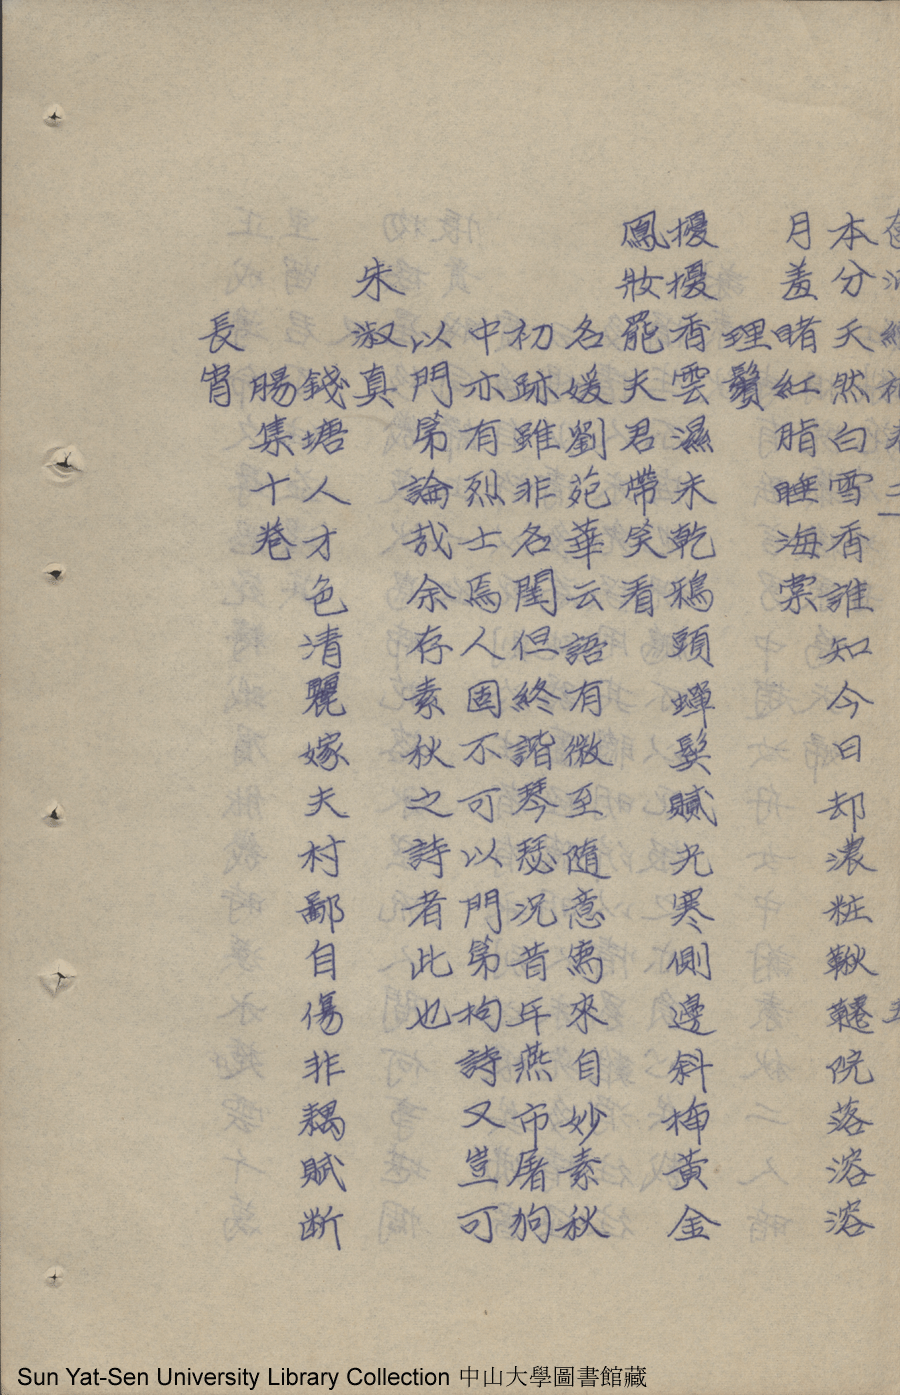 本分天然白雪香誰知今日却濃粧鞦韆院落溶溶
月羞睹紅脂睡海棠
理鬢
擾擾香雲濕未乾鴉頸蟬鬓膩光寒側邊斜插黃金
鳳妝罷夫君帶笑看
名媛劉苑華云語有微至隨意寫來自妙素秋
初跡雖非名閨但終諧琴瑟况昔年燕市屠狗
中亦有烈士焉人固不可以門第拘詩又豈可
以門第論哉余存素秋之詩者此也
朱淑真
錢塘人才色清麗嫁夫村鄙自傷非耦賦断
腸集十卷
長宵
Sun Yat-Sen University Library Collection 中山大學圖書館藏